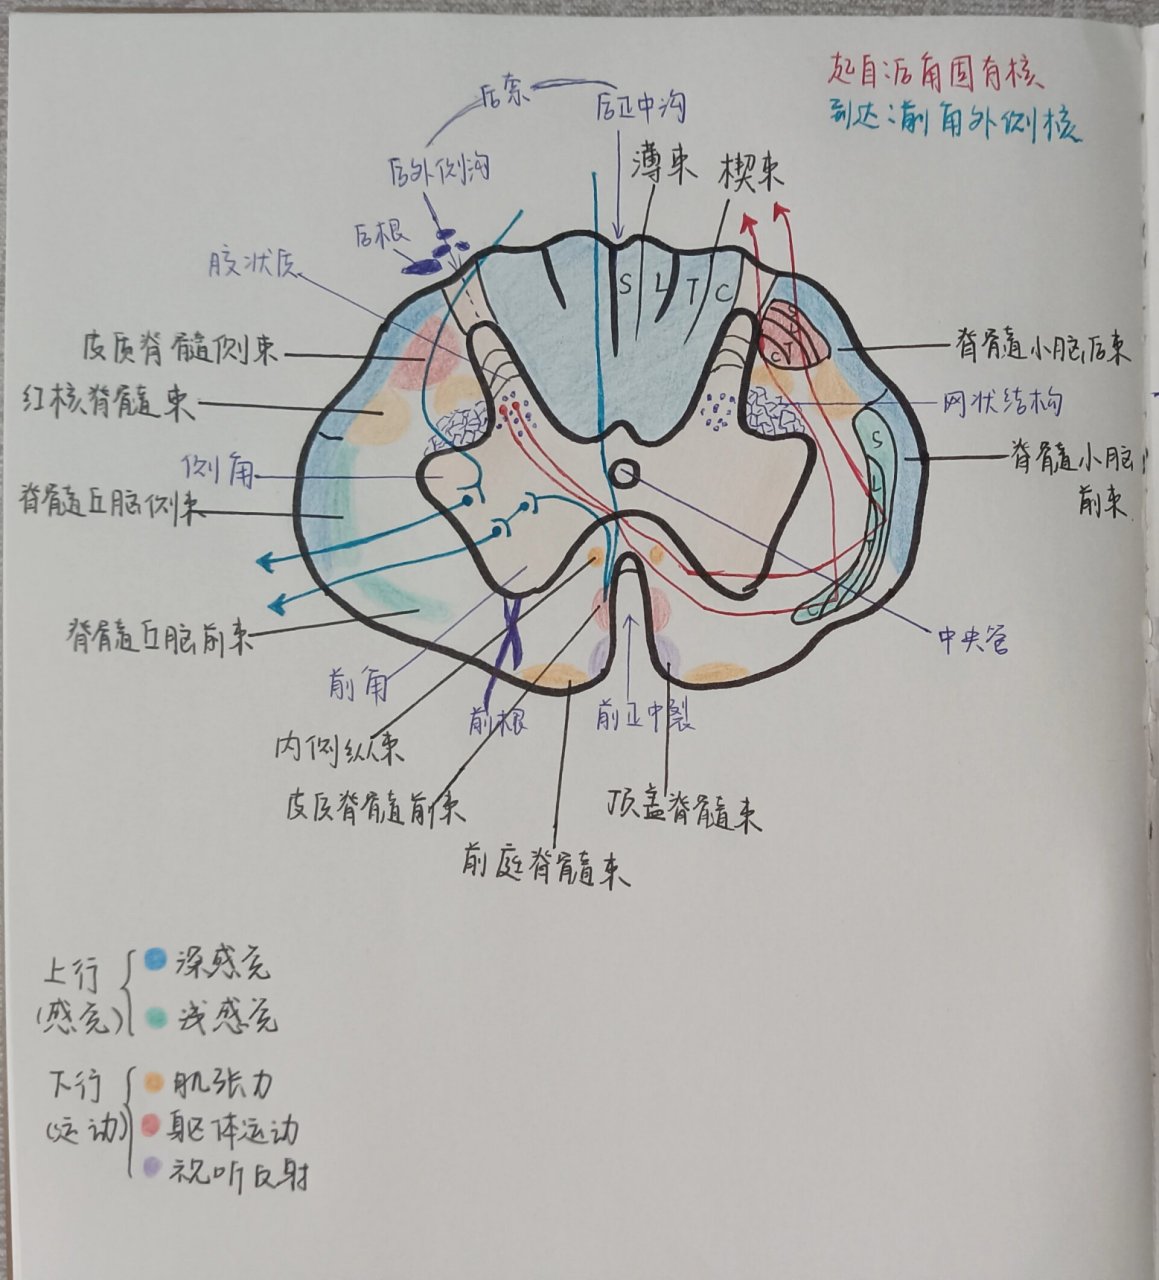 起自:后角固有核
到达:前角外侧核
后索
后正中沟
后外侧沟
薄束
楔束
后根
胶状质
S L T C
皮质脊髓侧束
脊髓小脑后束
S
L
T
C
红核脊髓束
网状结构
侧角
S
脊髓小脑
前束
L
脊髓丘脑侧束
T
C
脊髓丘脑前束
中央管
前角
前根
前正中裂
内侧纵束
皮质脊髓前束
顶盖脊髓束
前庭脊髓束
上行
(感觉)
深感觉
浅感觉
下行
(运动)
肌张力
躯体运动
视听反射